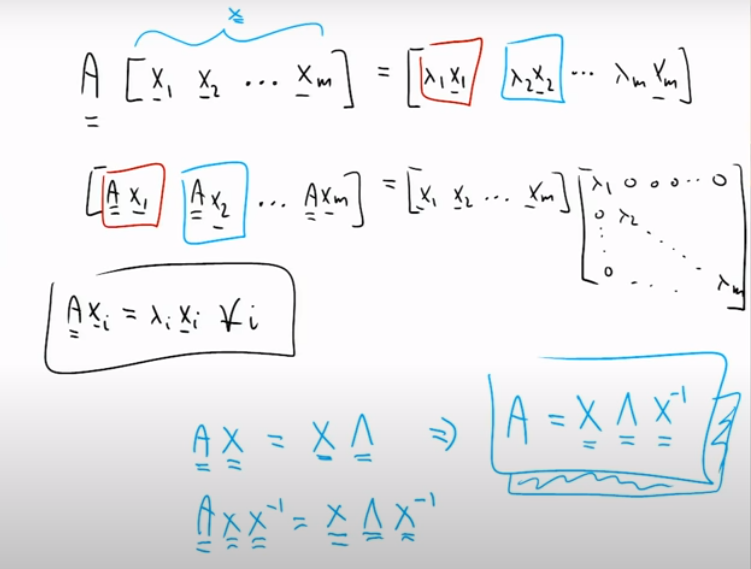 X
A [x₁ x₂ ... xₘ] = [λ₁x₁ λ₂x₂ ... λₘxₘ]
[A x₁ A x₂ ... Axₘ] = [x₁ x₂ ... xₘ] [λ₁ 0 0 0 ... 0
0 λ₂ ...
0 .... λₘ]
A xᵢ = λᵢ xᵢ ∀i
A X = X Λ ⇒ A = X Λ X⁻¹
A X X⁻¹ = X Λ X⁻¹